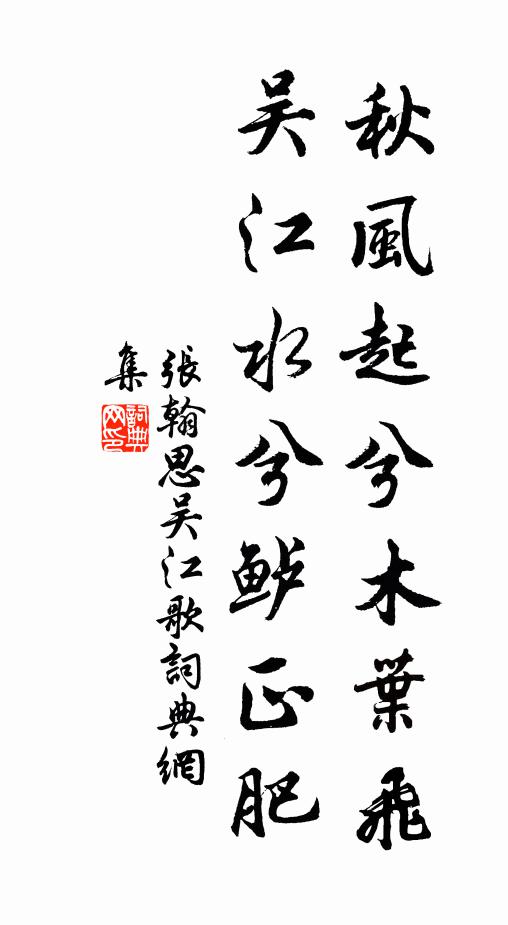 秋風起兮木葉飛
吳江水兮鲈正肥
張翰思吳江歌詞典網
集
詞典网印